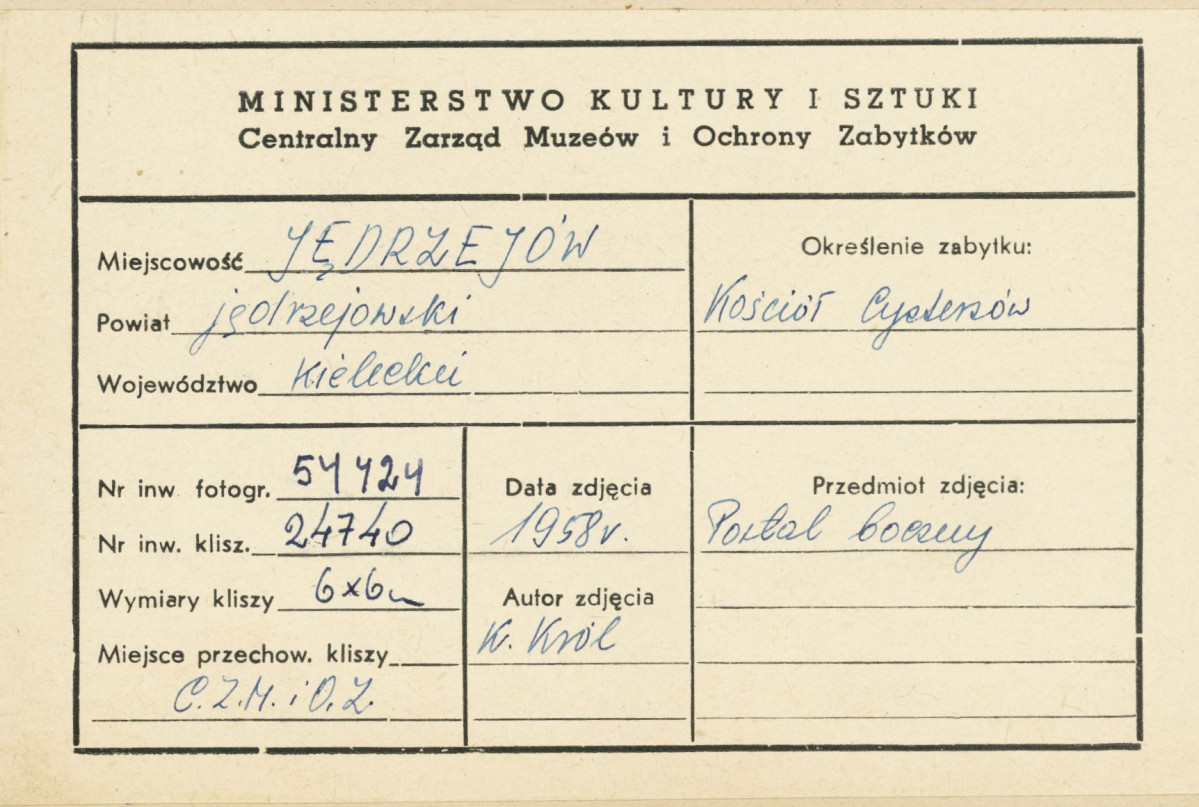 MINISTERSTWO KULTURY I SZTUKI
Centralny Zarząd Muzeów i Ochrony Zabytków
Miejscowość JĘDRZEJÓW
Powiat jędrzejowski
Województwo kieleckie
Określenie zabytku:
Kościół Cystersów
Nr inw. fotogr.
Nr inw. klisz. 24740
Wymiary kliszy 6x6
Miejsce przechow. kliszy
C.Z.M. i O.Z.
Data zdjęcia
1958 r.
Autor zdjęcia
K. Król
Przedmiot zdjęcia:
Portal boczny